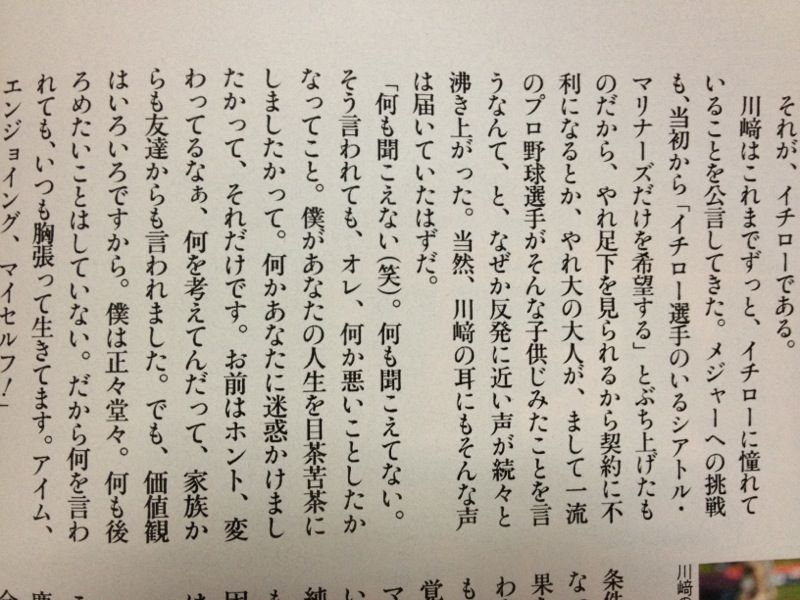 それが、イチローである。
川﨑はこれまでずっと、イチローに憧れて
いることを公言してきた。メジャーへの挑戦
も、当初から「イチロー選手のいるシアトル・
マリナーズだけを希望する」とぶち上げたも
のだから、やれ足下を見られるから契約に不
利になるとか、やれ大の大人が、まして一流
のプロ野球選手がそんな子供じみたことを言
うなんて、と、なぜか反発に近い声が続々と
沸き上がった。当然、川﨑の耳にもそんな声
は届いていたはずだ。
「何も聞こえない(笑)。何も聞こえてない。
そう言われても、オレ、何か悪いことしたか
なってこと。僕があなたの人生を目茶苦茶に
しましたかって。何かあなたに迷惑かけまし
たかって、それだけです。お前はホント、変
わってるなぁ、何を考えてんだって、家族か
らも友達からも言われました。でも、価値観
はいろいろですから。僕は正々堂々。何も後
ろめたいことはしていない。だから何を言わ
れても、いつも胸張って生きてます。アイム、
エンジョイング、マイセルフ!」
川﨑の
条件